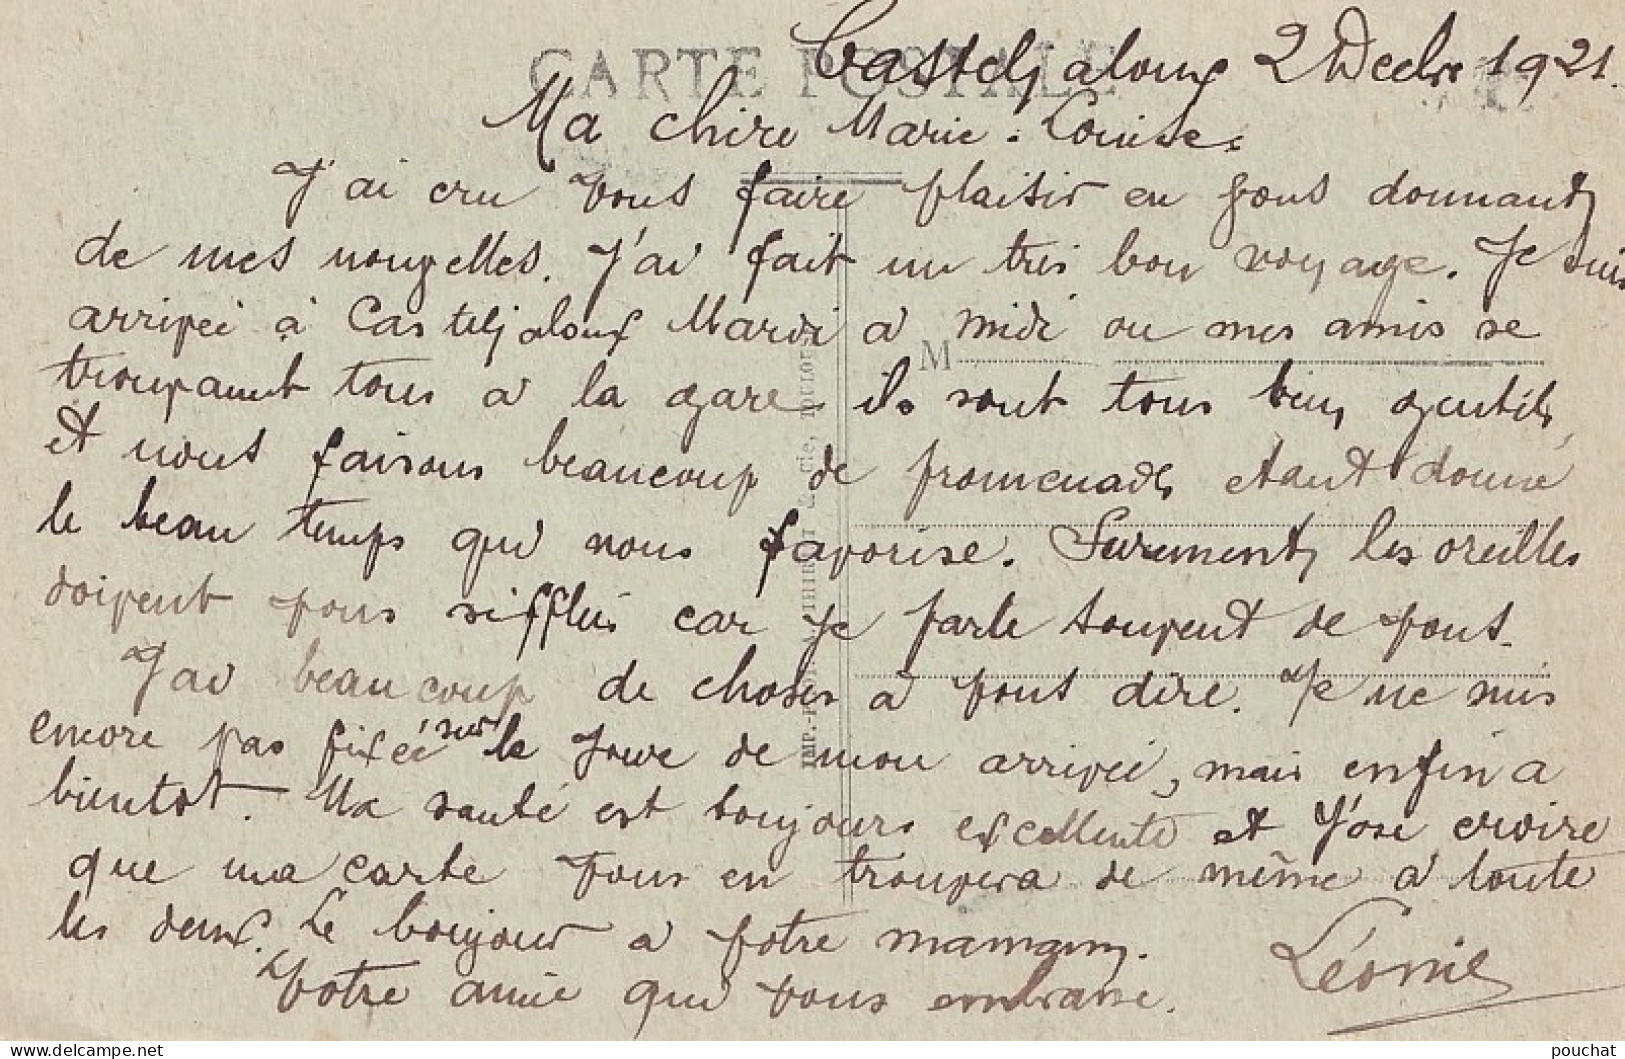 CARTE POSTALE
Casteljaloux 2 Decbre 1921.
Ma chère Marie-Louise.
J'ai cru vous faire plaisir en vous donnant
de mes nouvelles. J'ai fait un très bon voyage. Je suis
arrivée à Casteljaloux Mardi a midi ou mes amis se
trouvaient tous a la gare. ils sont tous bien gentils,
et nous faisons beaucoup de promenades etant donné
le beau temps qui nous favorise. Surement les oreilles
doivent vous siffler car je parle souvent de vous.
J'ai beaucoup de choses à vous dire. Je ne suis
encore pas fixée sur le jour de mon arrivée, mais enfin a
bientot. Ma santé est toujours excellente et j'ose croire
que ma carte vous en trouvera de même a toute
les deux. Le bonjour a votre maman.
Votre amie qui vous embrasse.
Léonie
M
pouchat
delcampe.net